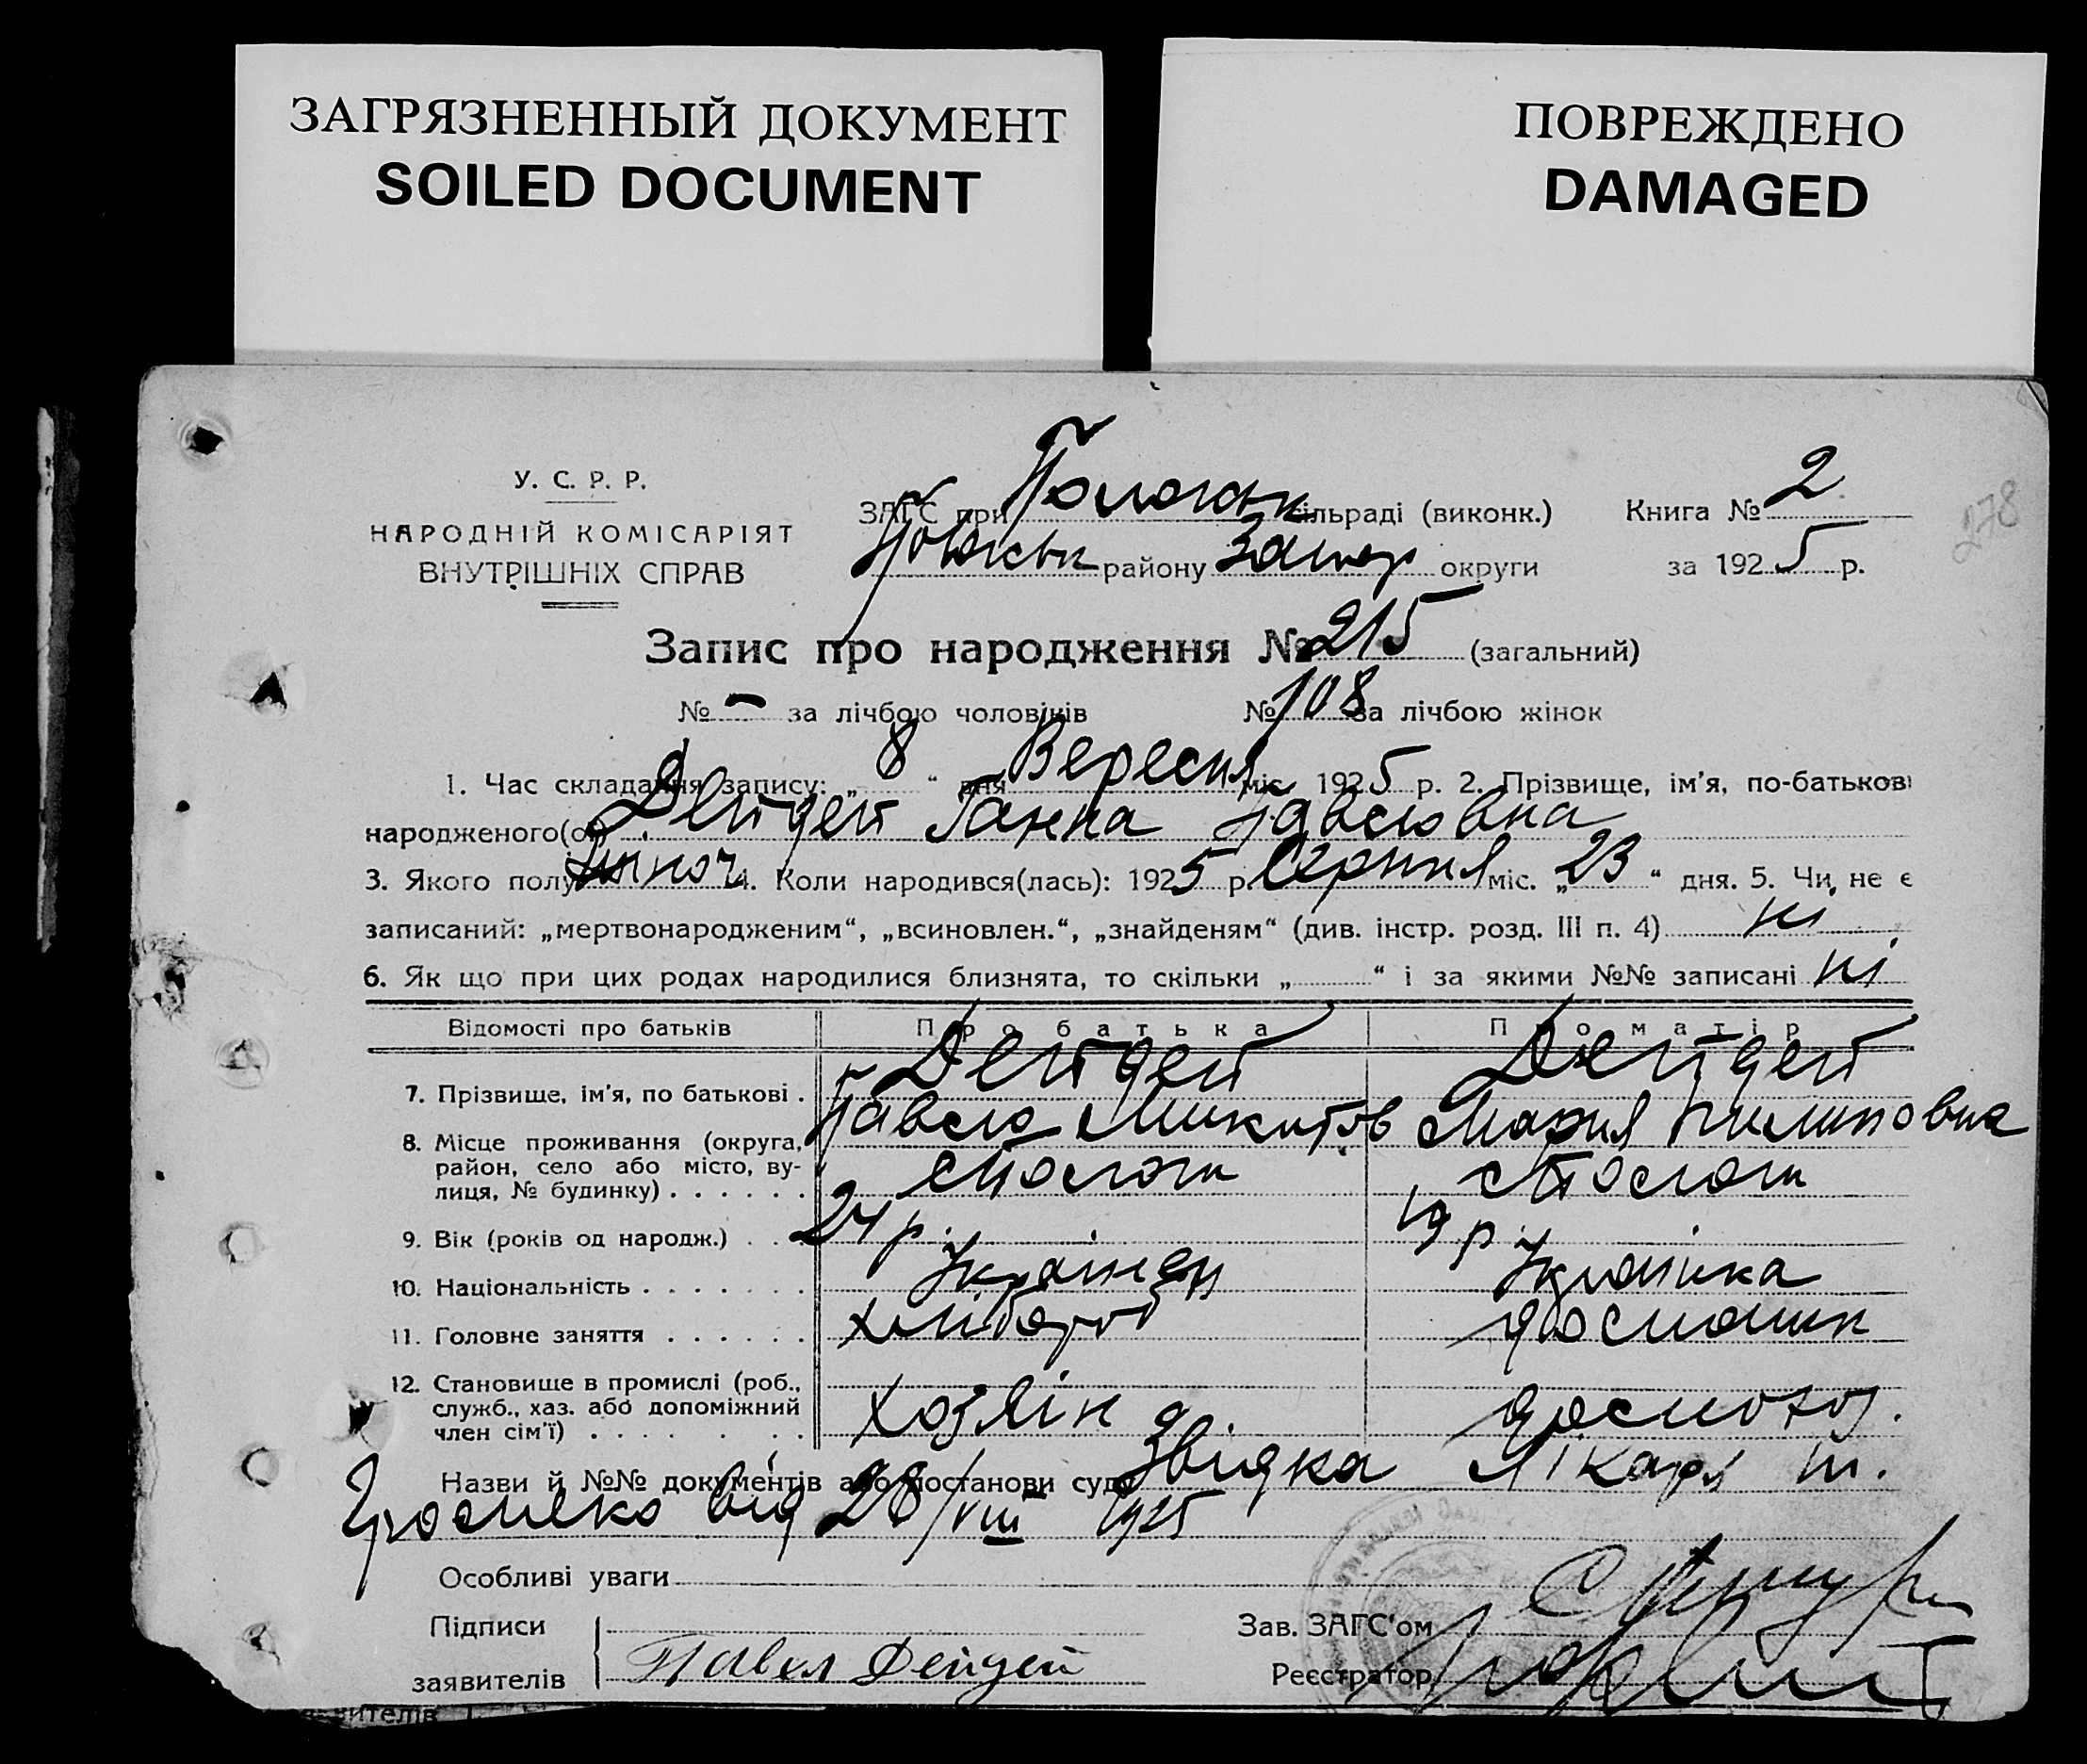 ЗАГРЯЗНЕННЫЙ ДОКУМЕНТ
SOILED DOCUMENT
ПОВРЕЖДЕНО
DAMAGED
У. С. Р. Р.
НАРОДНІЙ КОМІСАРІЯТ
ВНУТРІШНІХ СПРАВ
ЗАГС при Пологах сільраді (виконк.)
району Запор округи
Книга № 2
за 1925 р.
278
Запис про народження № 215 (загальний)
№ - за лічбою чоловіків № 108 за лічбою жінок
1. Час складання запису: „ 8 “ дня Вересня міс. 1925 р. 2. Прізвище, ім'я, по-батькові
народженого(ої) Дейдей Ганна Павловна
3. Якого полу жіноч. 4. Коли народився(лась): 1925 р. Серпня міс. „ 23 “ дня. 5. Чи не є
записаний: „мертвонародженим“, „всиновлен.“, „знайденям“ (див. інстр. розд. III п. 4) ні
6. Як що при цих родах народилися близнята, то скільки „ “ і за якими №№ записані ні
Відомості про батьків Про батька Про матір
7. Прізвище, ім'я, по батькові . Дейдей Павло Микитов Дейдей Мария Пилиповна
8. Місце проживання (округа,
район, село або місто, ву-
лиця, № будинку) . . . . . . с Пологи с Пологи
9. Вік (років од народж.) . . . 24 р. 19 р.
10. Національність . . . . . . . Українец Українка
11. Головне заняття . . . . . . хлібороб
12. Становище в промислі (роб.,
служб., хаз. або допоміжний
член сім'ї) . . . . . . . хозяін
Назви й №№ документів або постанови суду Звідка Лікаря
від 28/VIII 1925
Особливі уваги
Підписи
заявителів Павел Дейдей
Зав. ЗАГС'ом
Реєстратор